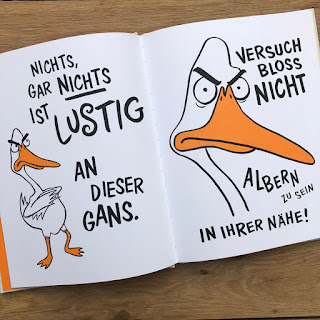 NICHTS,
GAR NICHTS
IST
LUSTIG
AN
DIESER
GANS.
VERSUCH
BLOSS
NICHT
ALBERN
ZU SEIN
IN IHRER NÄHE!